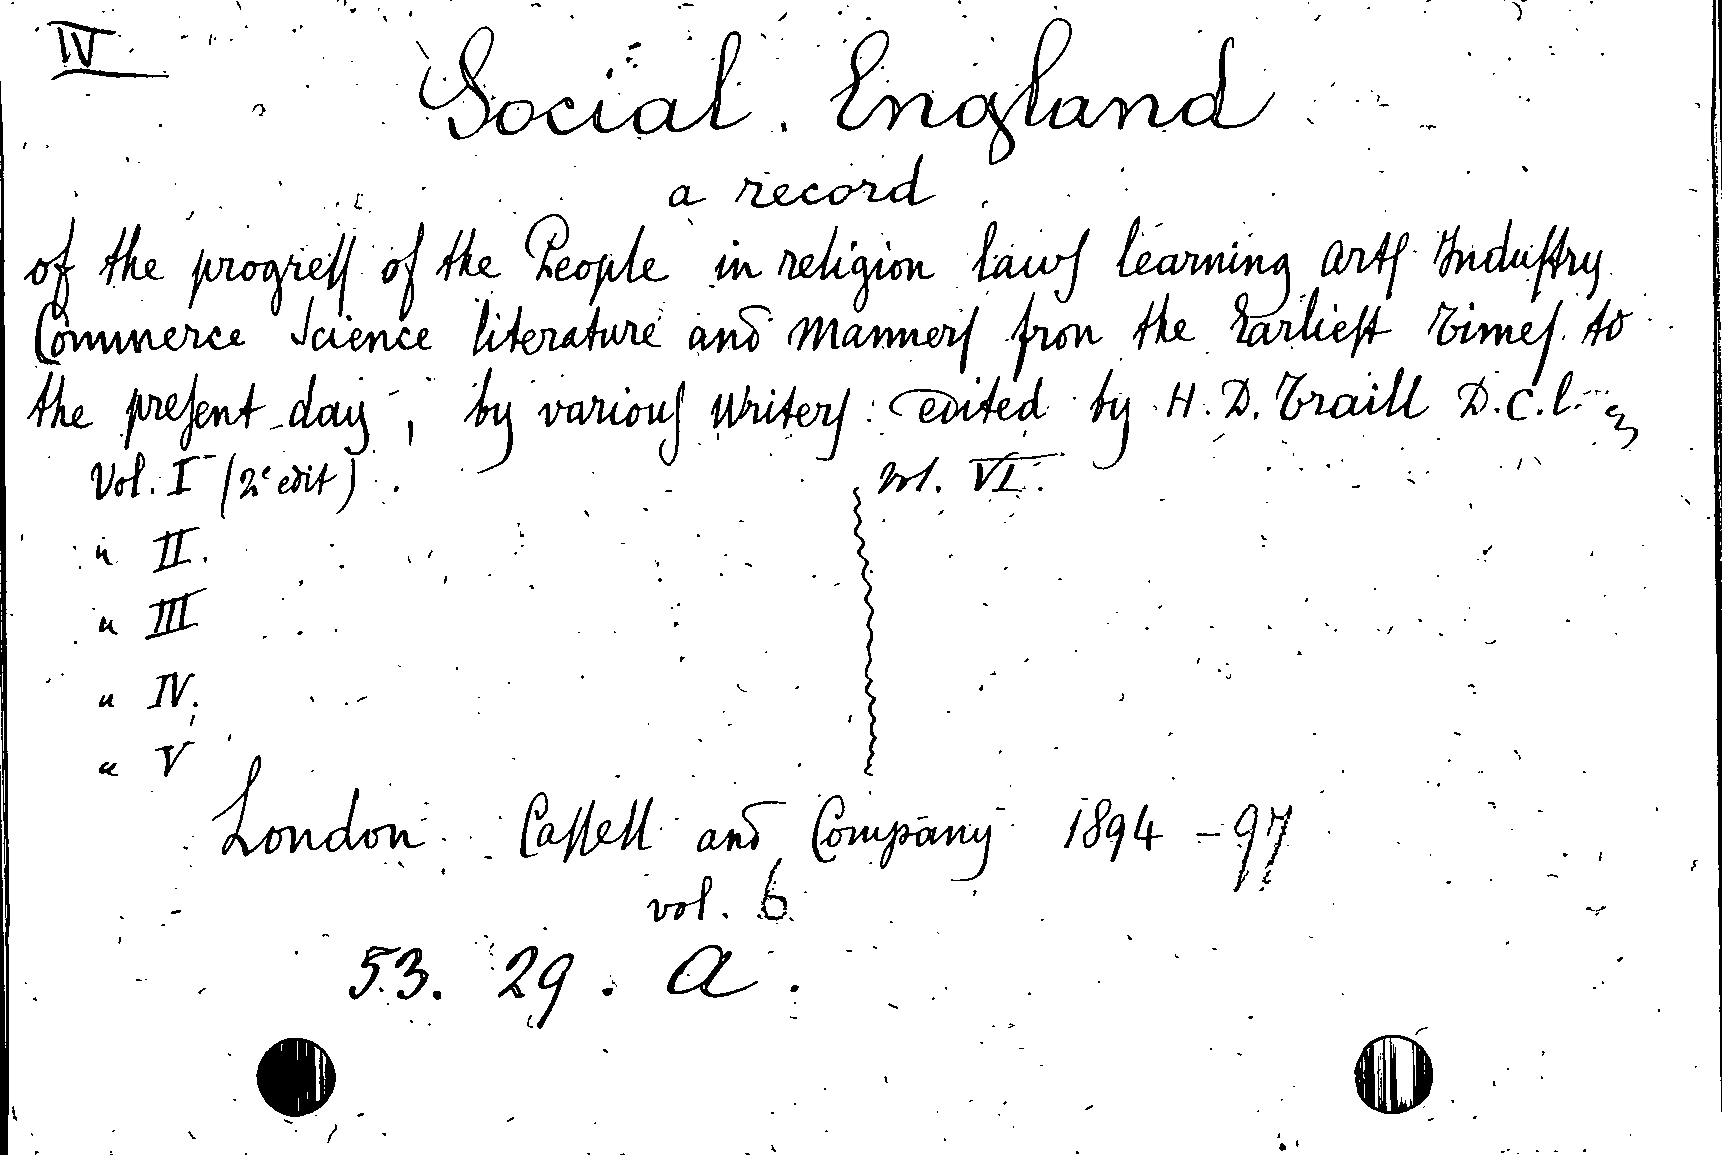 IV
Social England
a record
of the progress of the People in religion laws learning arts Industry
Commerce Science literature and Manners fron the Earliest Times to
the present day, by various Writers edited by H. D. Traill D.C.l.
Vol. I (2e edit)
" II.
" III
" IV.
" V
vol. VI.
London Cassell and Company 1894-97
vol. 6
53. 29. A.